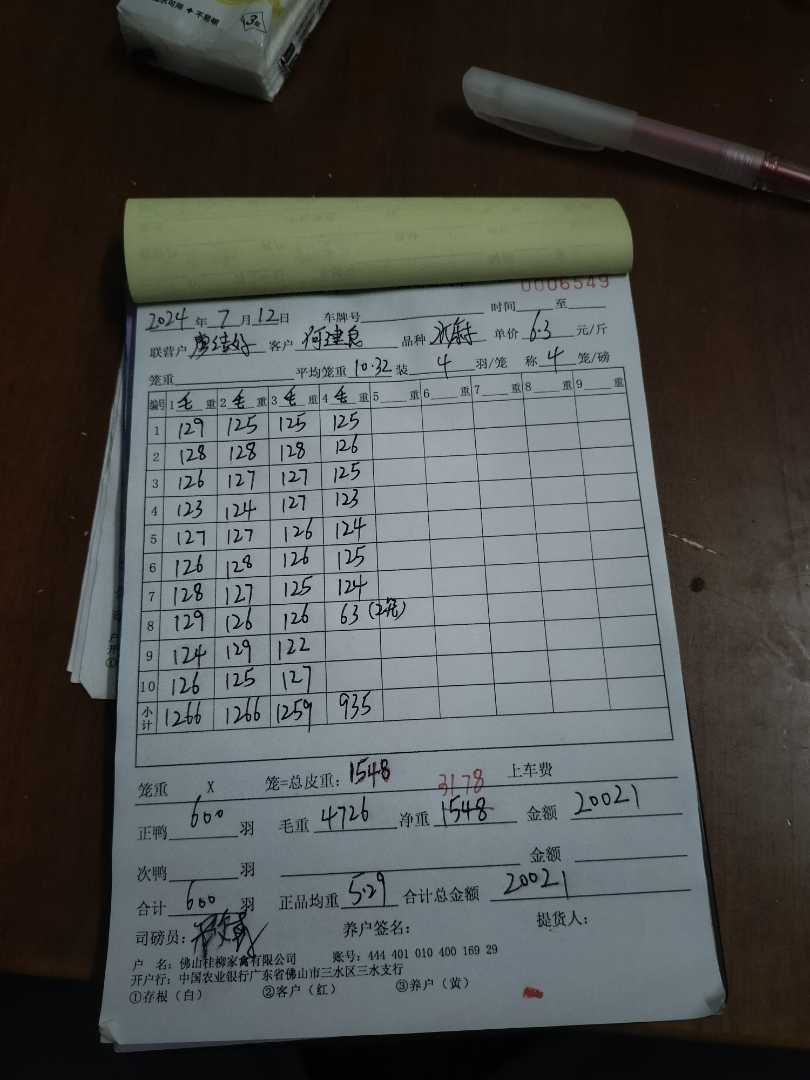 0006549
2024年 7月 12日 车牌号 时间 至
联营户 客户 何建良 品种 单价 6.3 元/斤
笼重 平均笼重 10.32 装 4 羽/笼 称 4 笼/磅
编号 1 毛 重 2 毛 重 3 毛 重 4 毛 重 5 重 6 重 7 重 8 重 9 重
1 129 125 125 125
2 128 128 128 126
3 126 127 127 125
4 123 124 127 123
5 127 127 126 124
6 126 128 126 125
7 128 127 125 124
8 129 126 126 63 (2笼)
9 124 129 122
10 126 125 127
小计 1266 1266 1259 935
笼重 X 笼=总皮重: 1548 上车费
3178
正鸭 600 羽 毛重 4726 净重 1548 金额 20021
次鸭 羽 金额
合计 600 羽 正品均重 5.29 合计总金额 20021
司磅员: 养户签名: 提货人:
户 名: 佛山桂柳家禽有限公司 账号: 444 401 010 400 169 29
开户行: 中国农业银行广东省佛山市三水区三水支行
①存根（白） ②客户（红） ③养户（黄）